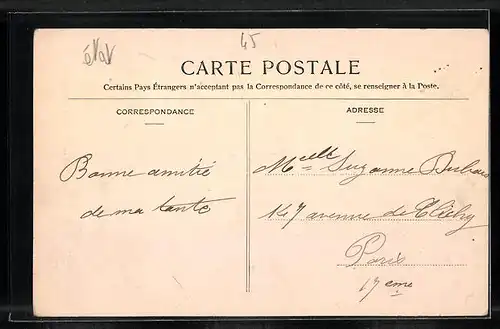 45
CARTE POSTALE
Certains Pays Étrangers n'acceptant pas la Correspondance de ce côté, se renseigner à la Poste.
CORRESPONDANCE
ADRESSE
Bonne amitié
de ma tante
Mcelle Suzanne
147 avenue de Clichy
Paris
17 eme